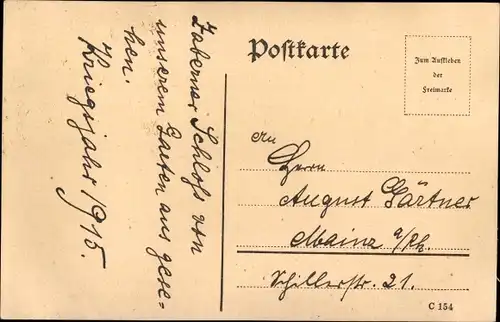 Zaberner Schloss von
unserem Garten aus gese-
hen.
Kriegsjahr 1915.
Postkarte
Zum Aufkleben
der
Freimarke
An
Herrn
August Gärtner
Mainz a/Rh.
Schillerstr. 21.
C 154